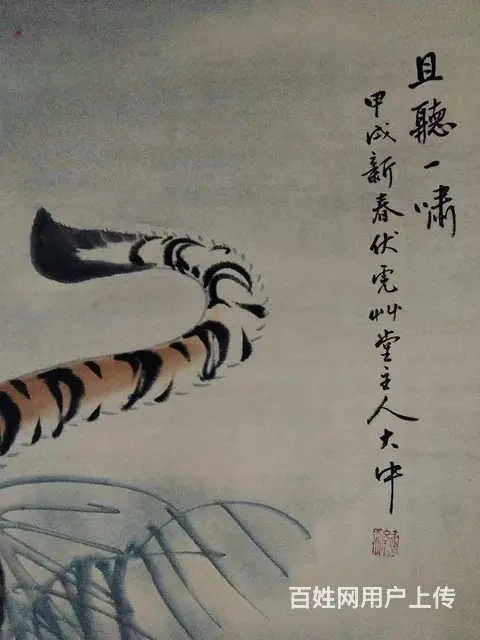 且聽一嘯
甲戌新春伏虎艸堂主人大中
百姓网用户上传